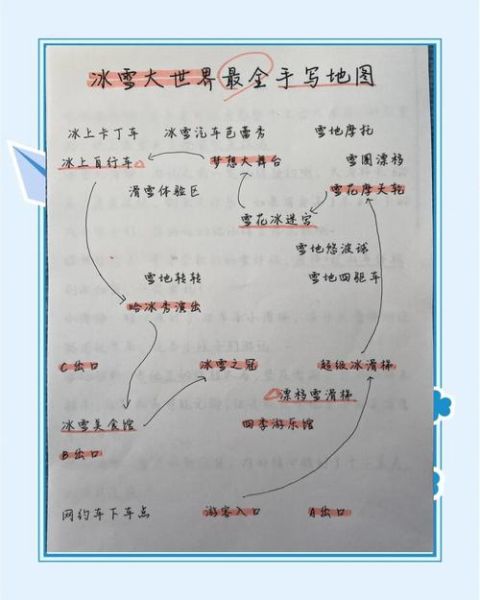 冰雪大世界最全手写地图
冰上卡丁车 冰雪汽车芭蕾秀 雪地摩托
冰上自行车 梦想大舞台 雪圈漂移
滑雪体验区 雪花摩天轮
雪花冰迷宫
雪地悠波球
雪地转转 雪地四驱车
哈冰秀演出
C出口 冰雪之冠 超级冰滑梯
漂移雪滑梯
冰雪美食馆 四季游乐馆
B出口
网约车下车点 游客入口 A出口